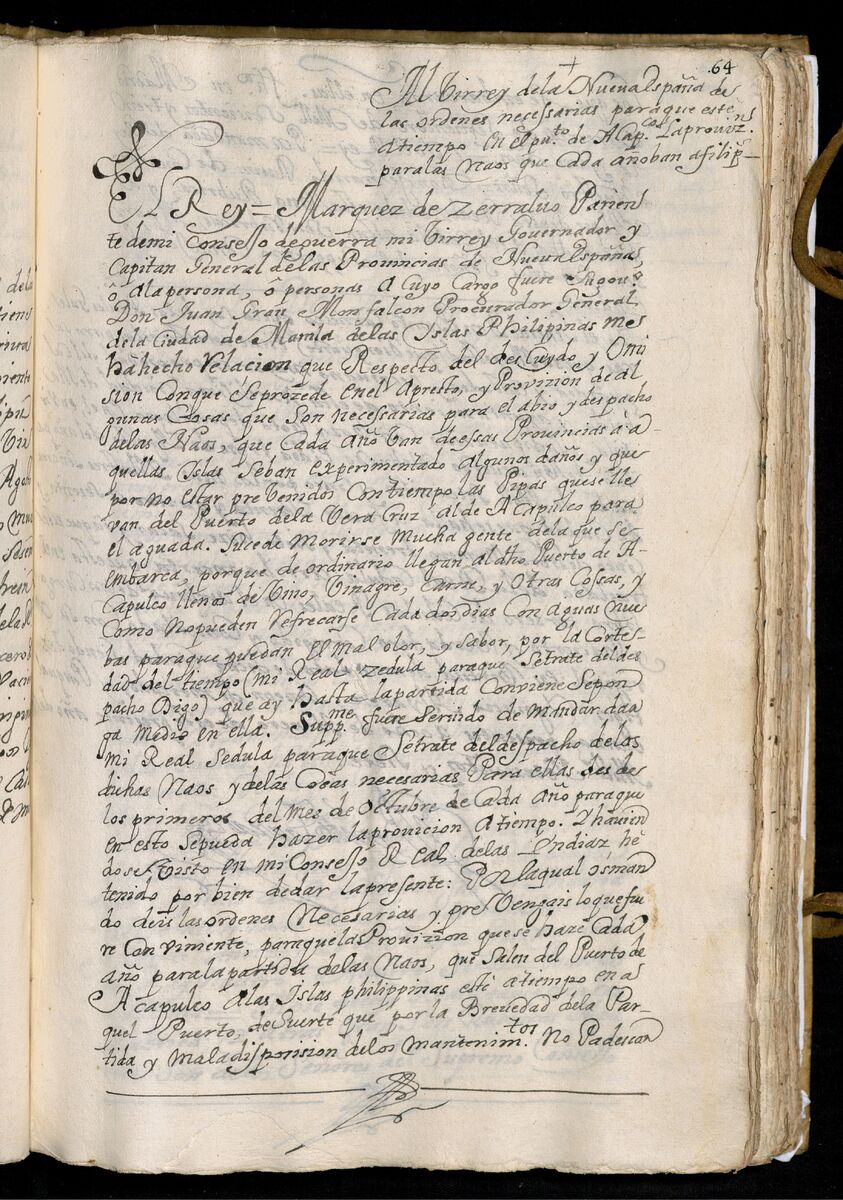 64
Al Virrey dela Nueva españa de
las ordenes necessarias paraque este
atiempo En el pu.to de Acap.co Laprovizn.
paralas Naos que Cada añoban afilip.s
EL Rey = Marquez de Zerraluo Parien
te demi Conssejo deguerra mi Virrey Governador y
Capitan General delas Provincias de Nueva España,
ô, ala persona, ô personas a Cuyo Cargo fuere Sugou.no
Don Juan Grau Monfalcon Procurador General,
dela Ciudad de Manila delas Islas Philipinas me
hâ hecho Relacion que Respecto del descuydo y Omi
sion Conque Seprozede en el Apresto, y Provizion de al
gunas Cosas que son necessarias para el abio y despacho
delas Naos, que Cada Año Van deesas Provincias â a-
quellas Islas Sehan experimentado algunos daños y que
por no estar preVenidos Contiempo las Pipas quese lle
van del Puerto dela Vera Cruz alde Acapulco para
el aguada. Sucede Morirse Mucha gente dela que se
embarca, porque de ordinario llegan al dho Puerto de A-
capulco llenas de Vino, Vinagre, Carne, y Otras Cossas, y
Como nopueden Refrecarse Cada dos dias Con aguas nue
bas paraque puedan el mal olor, y sabor, por la Corte-
dad del tiempo (mi Real Zedula paraque Setrate deldes
pacho Digo) que ay hasta lapartida Conviene Sepon
ga Medio en ella. Supp.me fuere Seruido de Mandar daa
mi Real Sedula paraque Setrate deldespacho delas
dichas Naos y delas Cosas necesarias Para ellas des de
los primeros del mes de Octubre de Cada Año paraque
en esto Sepueda hazer laprovicion Atiempo. Y haviend
dose Visto en mi Conssejo Real delas Indiaz he
tenido por bien dedar lapresente: Por laqual osman
do deis las ordenes Necesarias y preVengais loquefue
re Conviniente, paraquelas Provizion quese haze Cada
año paralapartida delas Naos, que Salen del Puerto de
Acapulco alas Islas philippinas estê atiempo en a
quel Puerto, de Suerte que por la Brevedad dela Par-
tida y maladisposision delos mantenim.tos No Padescan